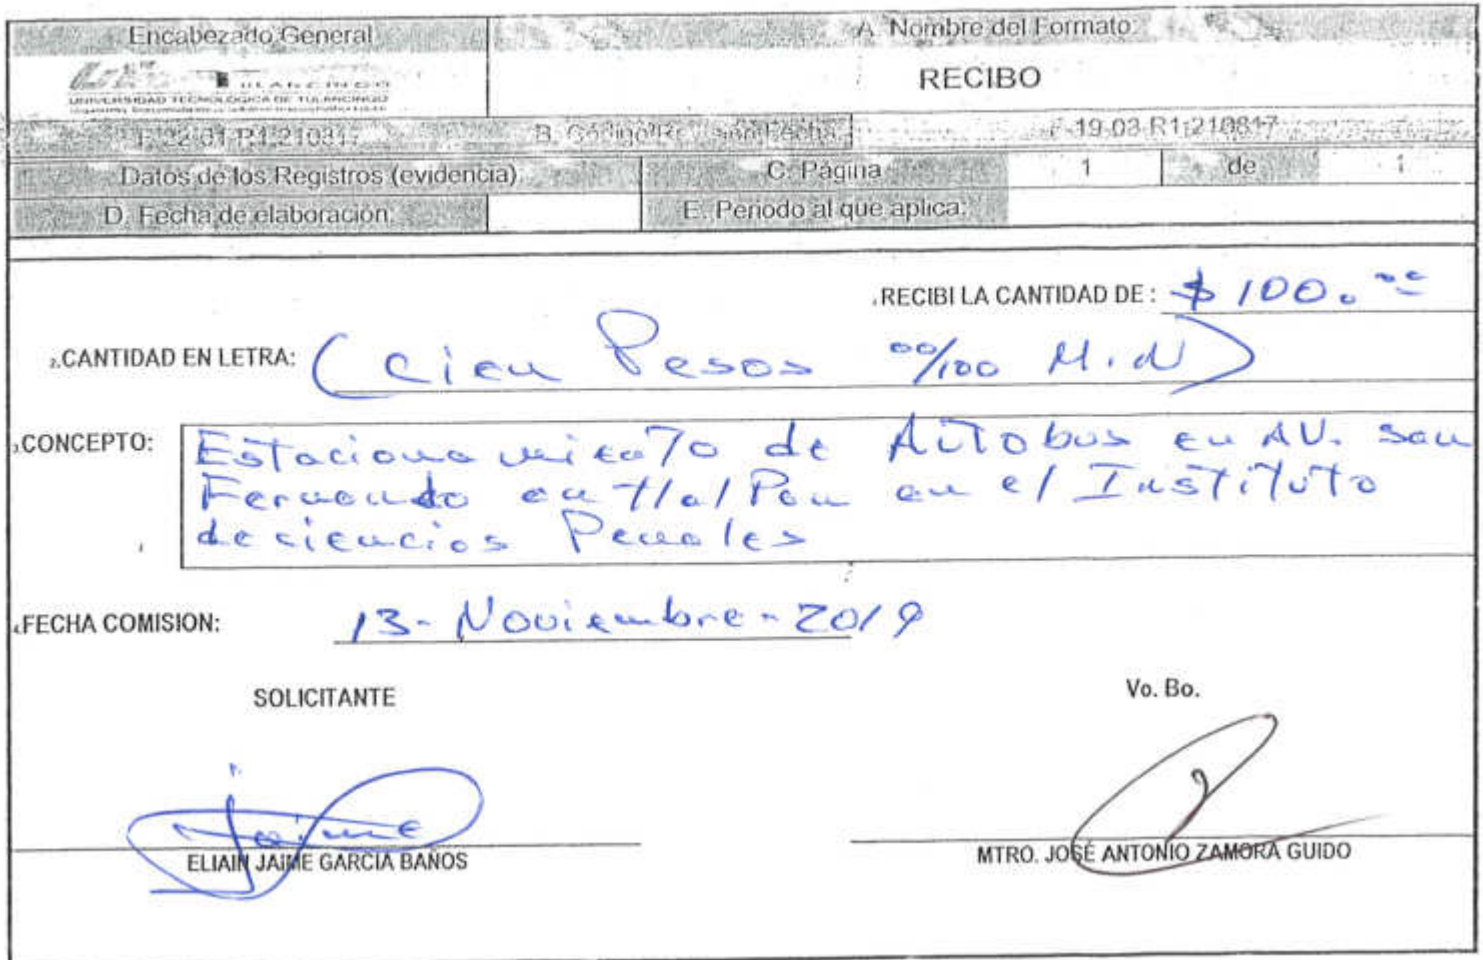 Encabezado General
A. Nombre del Formato:
TULANCINGO
UNIVERSIDAD TECNOLÓGICA DE TULANCINGO
RECIBO
F-22-01-R1;210817
B. Código/Revisión/Fecha:
F-19-03-R1;210817
Datos de los Registros (evidencia)
C. Página
1
de
1
D. Fecha de elaboración:
E. Periodo al que aplica:
1.RECIBI LA CANTIDAD DE: $ 100.00
2.CANTIDAD EN LETRA: (cien Pesos 00/100 M.N)
3.CONCEPTO: Estacionamiento de Autobus en AV. San
Fernando en tlalPan en el Instituto
de ciencias Penales
4.FECHA COMISION: 13-Noviembre-2019
SOLICITANTE
Vo. Bo.
Jaime
ELIAIN JAIME GARCIA BAÑOS
MTRO. JOSÉ ANTONIO ZAMORA GUIDO